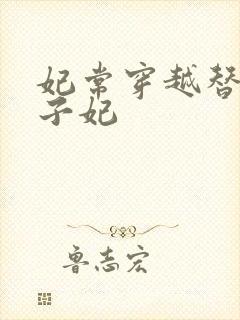 妃常穿越替
子妃
鲁志宏